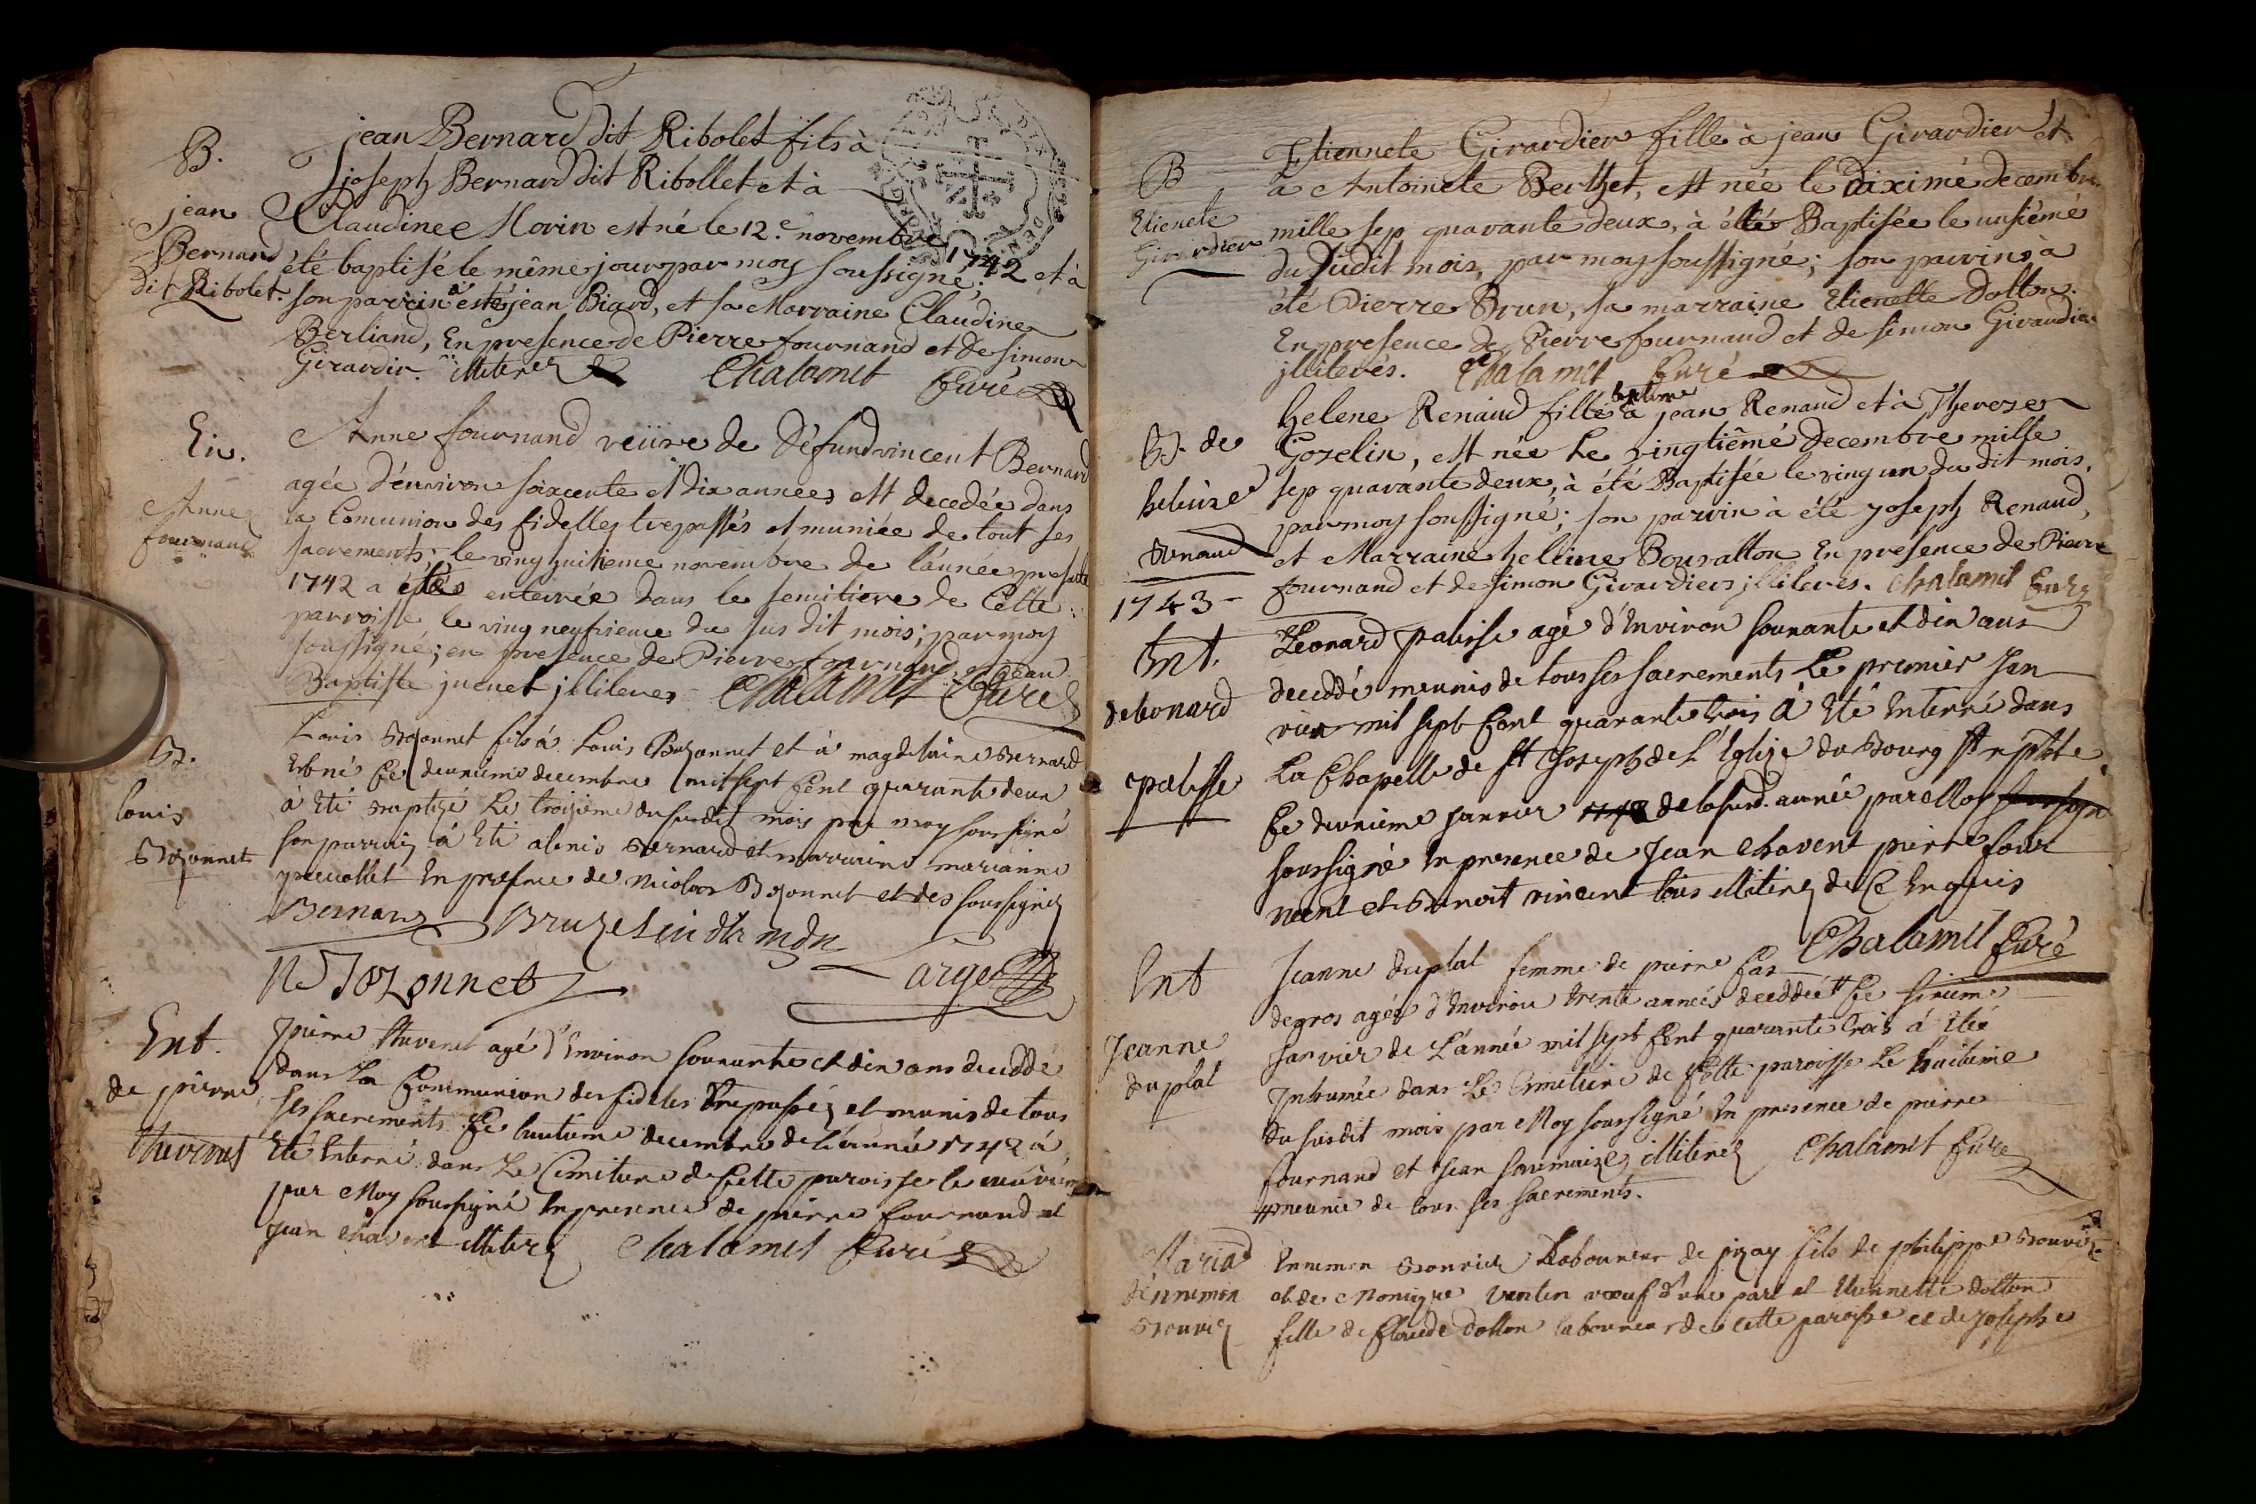 B.
jean
Bernard
dit Ribolet.
jean Bernard dit Ribolet fils à
joseph Bernard dit Ribollet et à
Claudine Morin est né le 12.e novembre 1742 et à
été baptisé le même jour par moy soussigné;
son parrin a esté jean Biard, et sa Marraine Claudine
Berliand, En presence de Pierre fournand et de simon
Girardir. illiterez Chalamet Curé
En.
Anne
fournand
Anne fournand veüve de défund vincent Bernard
agée d'énviron soixcente et dix années est decedée dans
la Comunion des fidelles trepassés et muniée de tout ses
sacrements; le vinghuitieme novembre de l'année presente
1742 a étés enterrée dans le semitiere de Cette
parroisse le ving neufrieme du sus dit mois; par moy
soussigné; en presence de Pierre fournand et jean
Baptiste juenet jlliteres Chalamet Curé
B.
louis
Bozonnet
Louis Bozonnet fils à Louis Bozonnet et à magdelaine Bernard
Est né Le deuxieme decembre mil sept Cent quarante deux
à Eté Baptizé Le troizieme du susdit mois par moy soussigné
son parrein à Eté alexis Bernard et marraine marianne
En presence de nicolas Bozonnet et des soussignez
Bernard
N Bozonnet
Large
Ent.
de pierre
thevenet
pierre thevenet agé d'Environ soixante et dix ans deceddé
dans La Communion des fideles trepassez et munis de tous
ses sacrements Le huitieme decembre de l'année 1742 à
Eté Enterré dans Le Cimitiere de Cette paroisse le neuvieme
par Moy soussigné En presence de pierre fournand et
Jean chavent illiterez Chalamet Curé
B
Etienete
Girardier
Etiennete Girardier fille à jean Girardier et
à Antoinete Berthet, est née le dixiemé decembre
mille sep quarante deux, à étté Baptisée le unsiémé
du sudit mois, par moy soussigné; son parrins à
été Pierre Brun, sa marraine Etienette Dollon.
En presence de Pierre fournand et de simon Girardier
jlliterés. Chalamet Curé
B. de
heleine
Renaud
helene Renaud fille à jean Renaud et à Therese
Gozelin, est née Le vingtiémé decembre mille
sep quarante deux, à été Baptisée le ving un du dit mois,
par moy soussigné; son parrin à été joseph Renaud,
et Marraine heleine Bouvallon En presence de Pierre
fournand et de simon Girardiers jlliteres. Chalamet Curé
1743
Ent.
de leonard
palisse
Leonard palisse agé d'Environ soixante et dix ans
deceddé meunis de tous ses sacrements Le premier Jan
vier mil sept Cent quarante trois à Eté Enterré dans
La Chapelle de st Joseph de L'Eglize du Bourg
Le deuxieme Janvier de la susd. année par Moy
soussigné En presence de Jean Chavent pierre four
nent et Benoit vincent tous illiterez de Ce Enquis
Chalamet Curé
Ent
Jeanne
duplat
Jeanne duplat femme de pierre Cas
degros agée d'Environ trente années deceddée # Le sixieme
Janvier de L'année mil sept Cent quarante trois à Eté
Inhumée dans Le Cimetiere de Cette paroisse Le huitieme
du susdit mois par Moy soussigné En presence de pierre
fournand et Jean saumaize illiterez Chalamet Curé
# meunie de tous ses sacrements.
Mariage
d'Ennemon
Bouvier
Ennemon Bouvier Laboureur de pizay fils de philippe Bouvier
et de Monique veuf d'une part et Etiennette dollon
fille de Claude dollon laboureur de cette paroisse et de Josephe